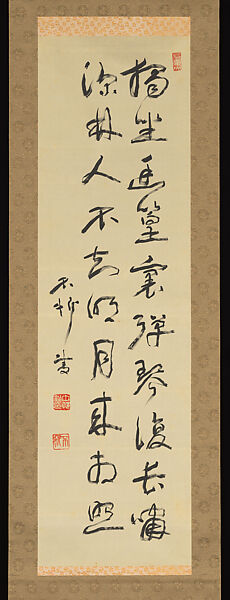 獨坐幽篁裏彈琴復長嘯
深林人不知明月来相照
不折書